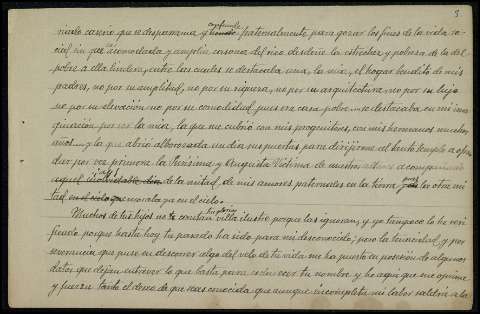 3.
niado caserio que se desparrama y confunde fraternalmente para gozar los fines de la vida so-
cial sin que la acomodada y amplia casona del rico desdeñe la estrechez y pobreza de la del
pobre a ella lindera, entre las cuales se destacaba una, la mia, el hogar bendito de mis
padres, no por su amplitud, no por su riqueza, no por su arquitectura, no por su lujo
no por su elevación, no por su comodidad, pues era casa pobre... se destacaba en mi ima-
ginación por ser la mia, la que me cubrió con mis progenitores, con mis hermanos muchos
años... y la que abrió alborozada un dia sus puertas para dirijirme al santo templo a ofren-
dar por vez primera la Purísima y Augusta Víctima de nuestros altares acompañado
aquel inolvidable dia de la mitad, de mis amores paternales en la tierra pues la otra mi-
tad en el cielo que moraba ya en el cielo.
Muchos de tus hijos no cantan tus glorias villa ilustre porque las ignoran, y yo tampoco lo he veri-
ficado porque hasta hoy tu pasado ha sido para mi desconocido; pero la tenacidad y per-
severancia que puse en descorrer algo del velo de tu vida me ha puesto en posesión de algunos
datos que dejan entrever lo que basta para esclarecer tu nombre y he aqui que me oprime
y fuerza tanto el deseo de que seas conocida que aunque incompleta mi labor saldrá a la